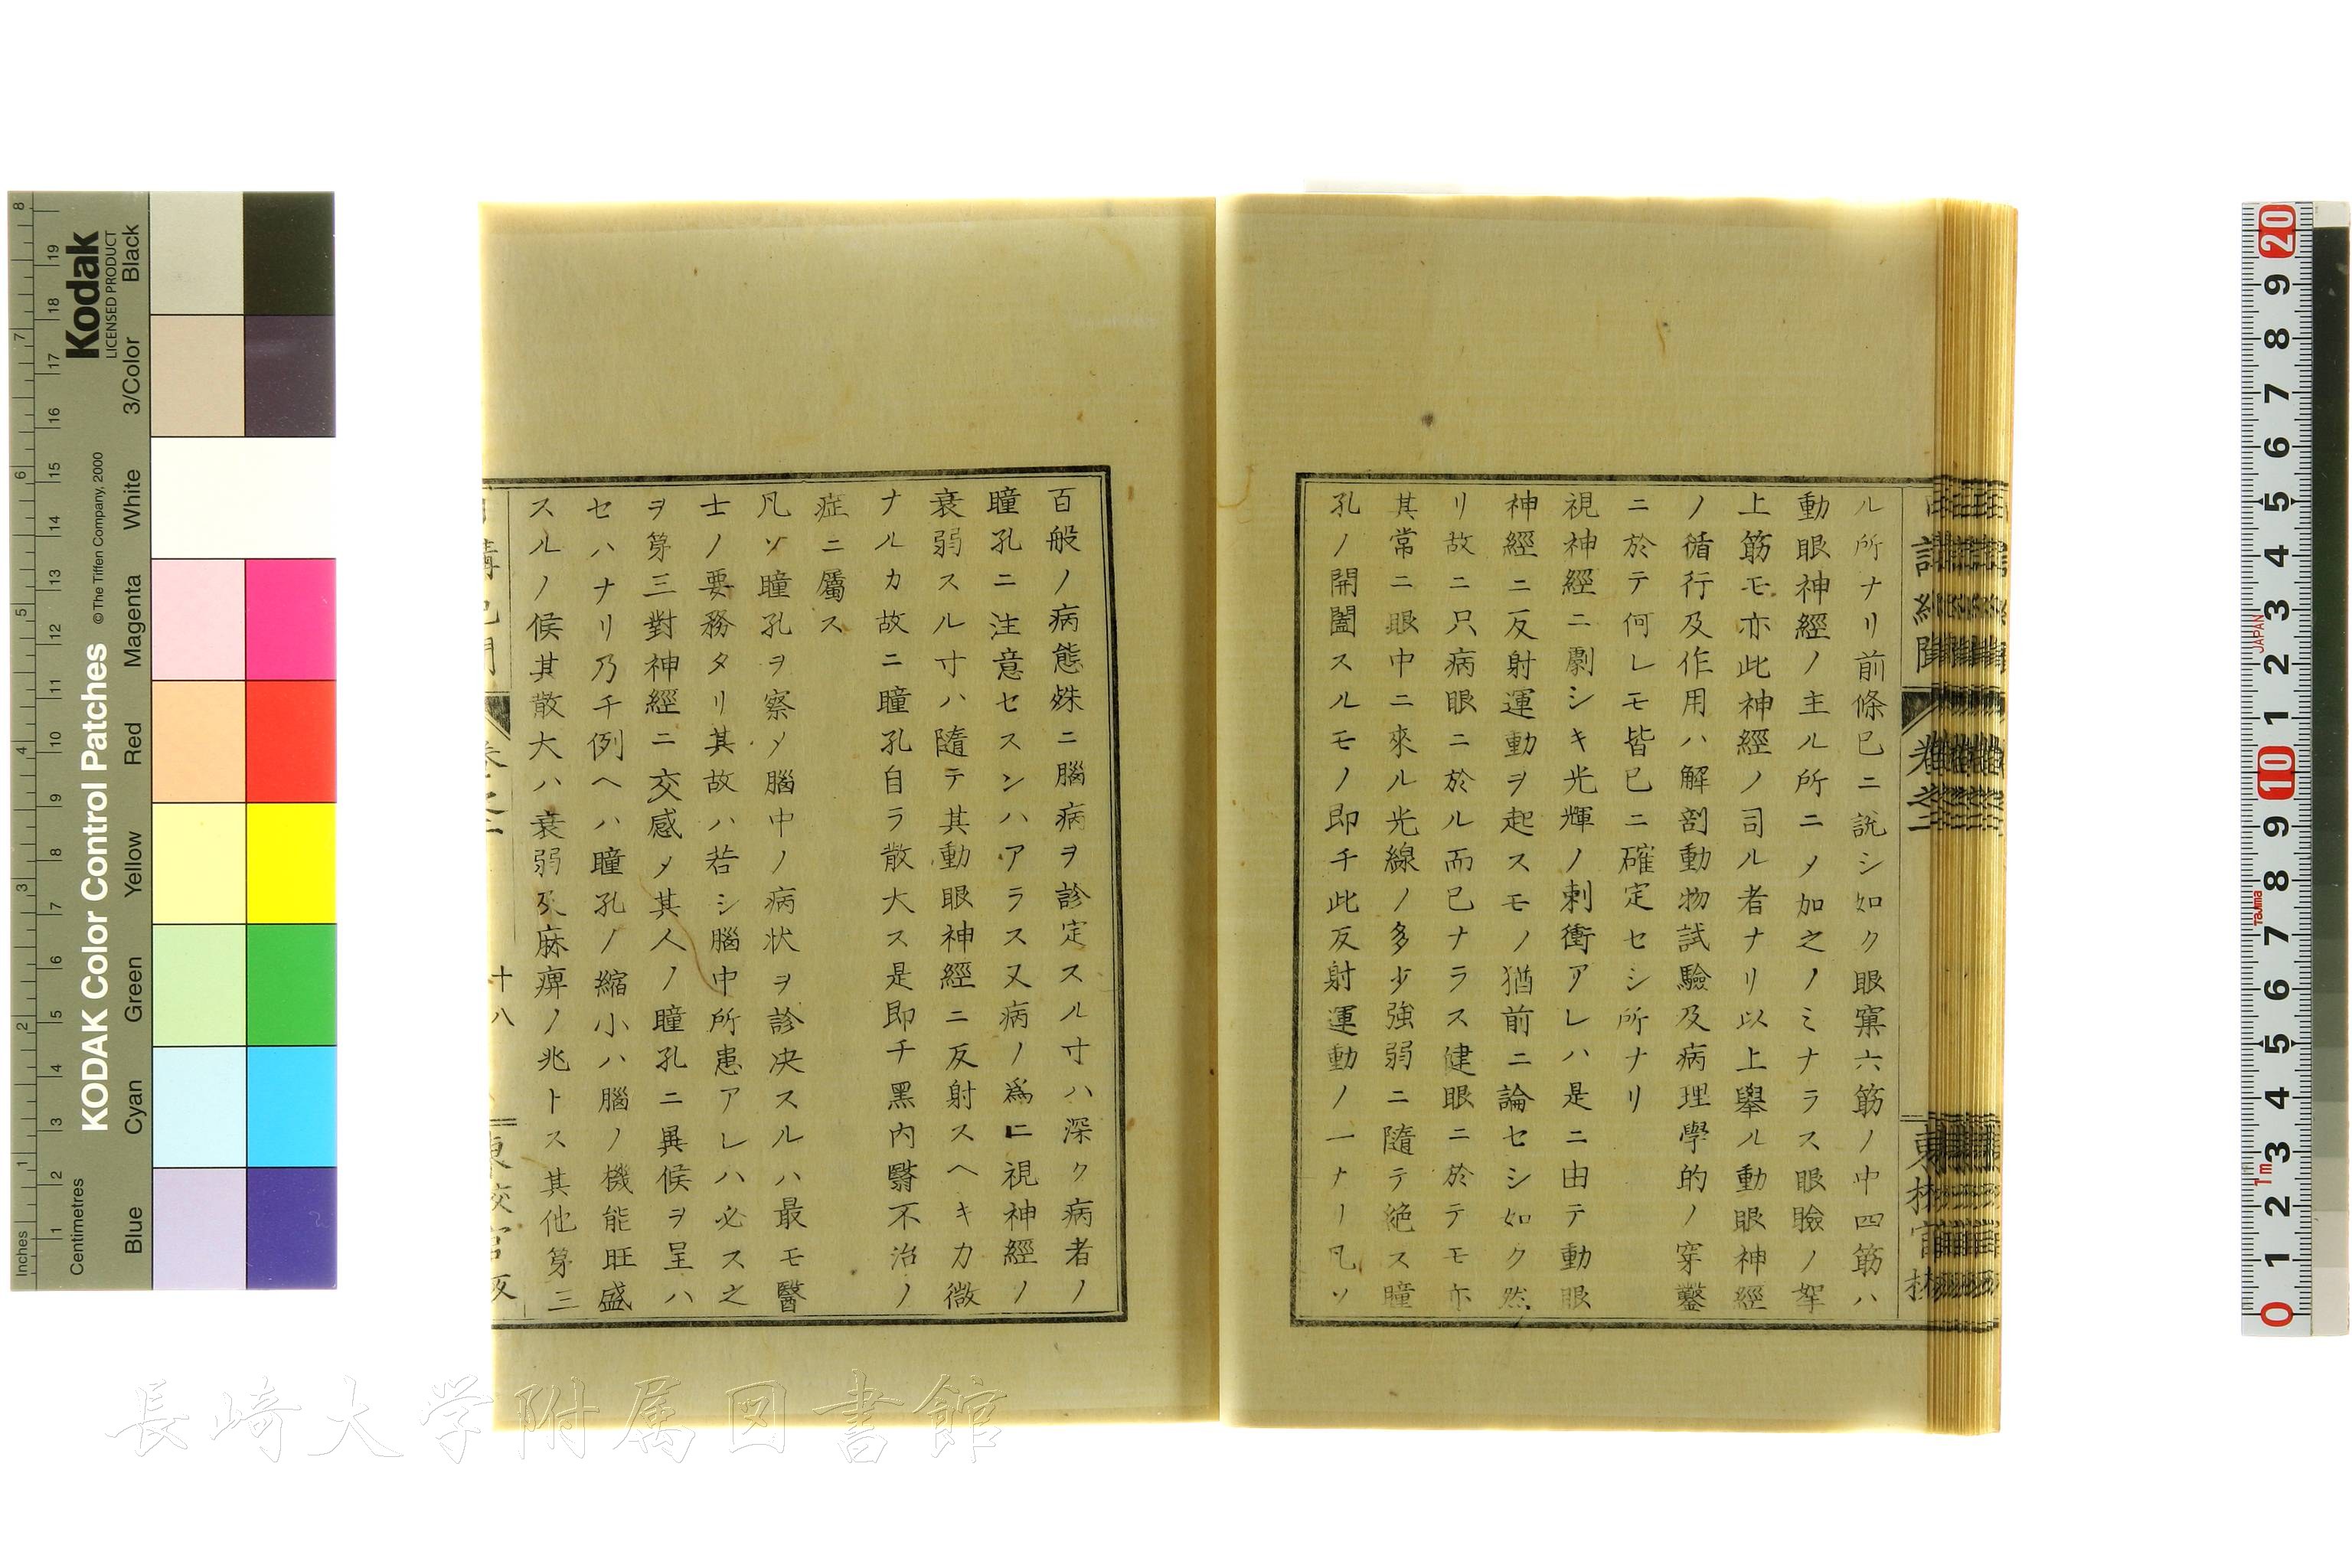 ル所ナリ前條已ニ説シ如ク眼窠六筋ノ中四筋ハ
動眼神經ノ主ル所ニノ加之ノミナラス眼瞼ノ挙
上筋モ亦此神經ノ司ル者ナリ以上擧ル動眼神經
ノ循行及作用ハ解剖動物試驗及病理學的ノ穿鑿
ニ於テ何レモ皆已ニ確定セシ所ナリ
視神經ニ劇シキ光輝ノ刺衝アレハ是ニ由テ動眼
神經ニ反射運動ヲ起スモノ猶前ニ論セシ如ク然
リ故ニ只病眼ニ於ル而已ナラス健眼ニ於テモ亦
其常ニ眼中ニ來ル光線ノ多少強弱ニ隨テ絶ス瞳
孔ノ開闔スルモノ即チ此反射運動ノ一ナリ凡ソ
卷之二
百般ノ病態殊ニ腦病ヲ診定スル寸ハ深ク病者ノ
瞳孔ニ注意セスンハアラス又病ノ爲ニ視神經ノ
衰弱スル寸ハ隨テ其動眼神經ニ反射スヘキカ微
ナルカ故ニ瞳孔自ラ散大ス是即チ黑内翳不治ノ
症ニ屬ス
凡ソ瞳孔ヲ察メ腦中ノ病状ヲ診决スルハ最モ醫
士ノ要務タリ其故ハ若シ腦中所患アレハ必ス之
ヲ第三對神經ニ交感メ其人ノ瞳孔ニ異候ヲ呈ハ
セハナリ乃チ例ヘハ瞳孔ノ縮小ハ腦ノ機能旺盛
スルノ候其散大ハ衰弱及麻痺ノ兆トス其他第三
十八
長崎大学附属図書館
Kodak
LICENSED PRODUCT
KODAK Color Control Patches
© The Tiffen Company, 2000
Inches
Centimetres
1 2 3 4 5 6 7 8
1 2 3 4 5 6 7 8 9 10 11 12 13 14 15 16 17 18 19
Blue
Cyan
Green
Yellow
Red
Magenta
White
3/Color
Black
0 1 2 3 4 5 6 7 8 9 10 1 2 3 4 5 6 7 8 9 20
1m
Tajima
JAPAN